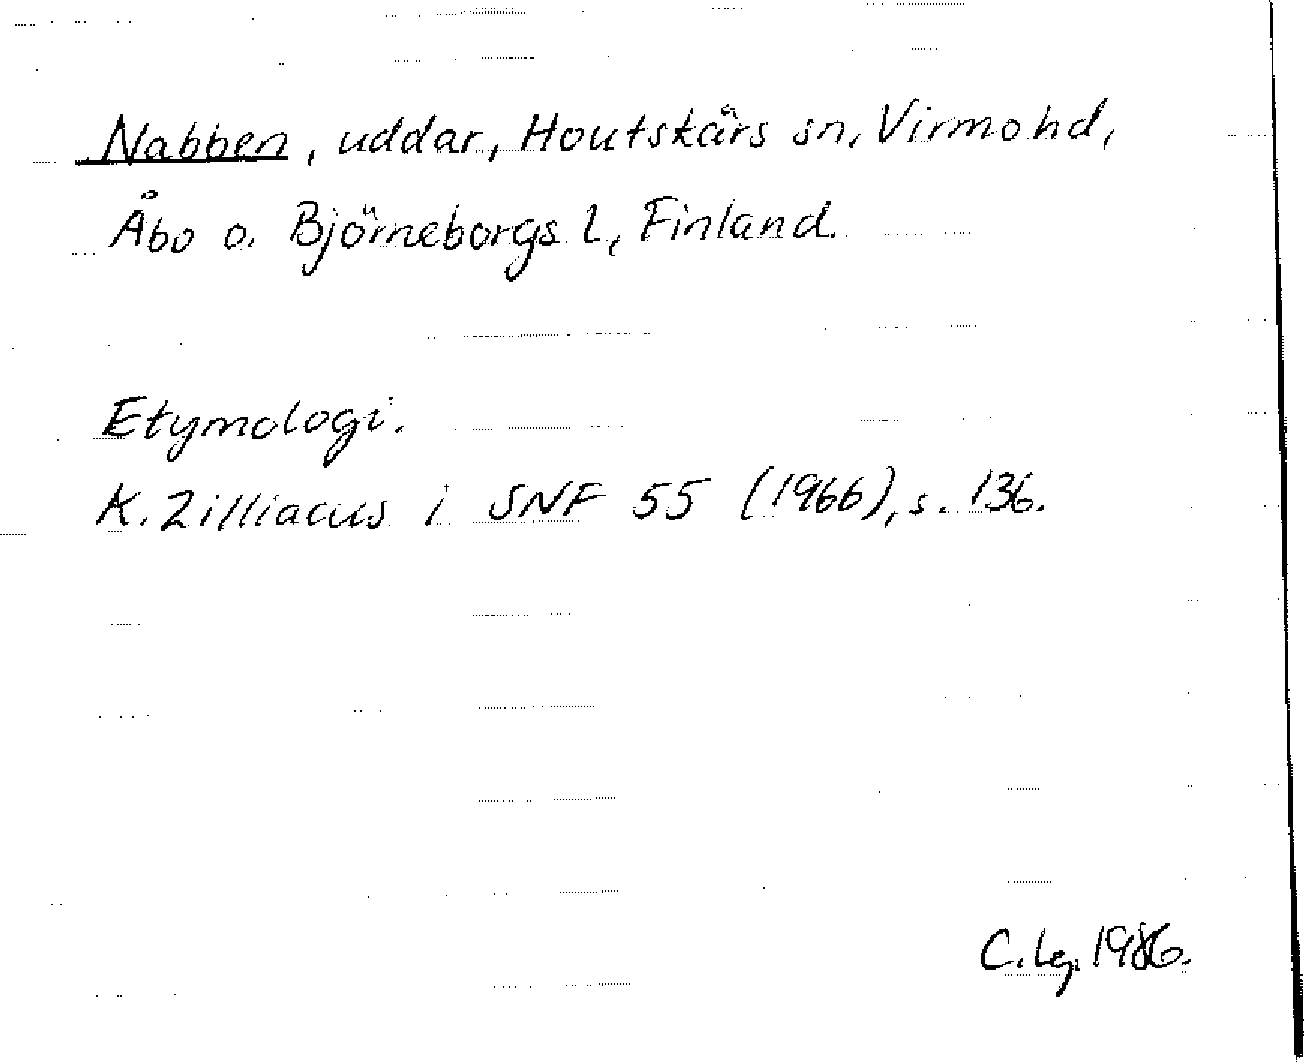 Nabben, uddar, Houtskärs sn, Virmo hd,
Åbo o. Björneborgs l, Finland.
Etymologi.
K. Zilliacus i SNF 55 (1966), s. 136.
C. Lg. 1986.